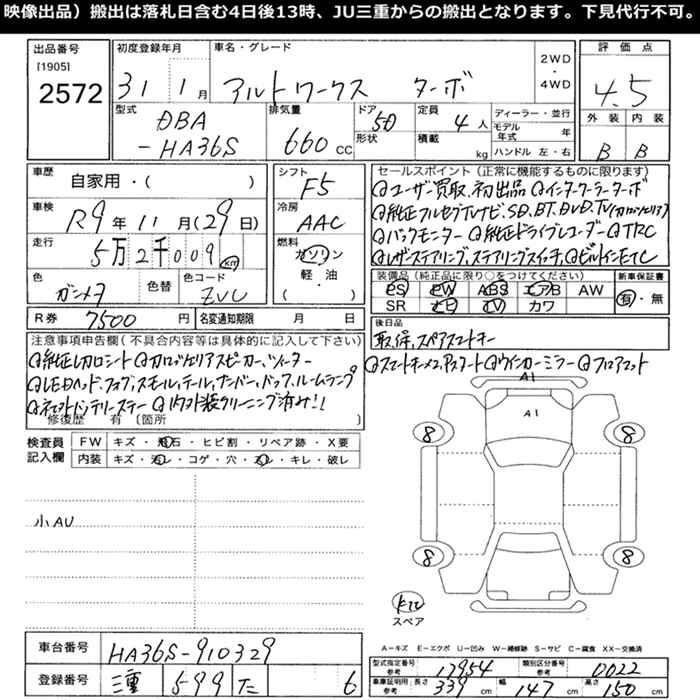 映像出品）搬出は落札日含む4日後13時、JU三重からの搬出となります。下見代行不可。
出品番号 初度登録年月 車名・グレード 2WD・4WD 評価点
[1905]
2572 31 1月 アルトワークス ターボ 4.5
型式 排気量 ドア 定員 ディーラー・並行 外装 内装
DBA 5D 4人 モデル年式 年
-HA36S 660cc 形状 積載 kg ハンドル 左・右 B B
車歴 自家用・( ) シフト F5 セールスポイント（正常に機能するものに限ります）
◎ユーザー買取、初出品 ◎インタークーラーターボ
車検 R9年11月(29日) 冷房 AAC ◎純正フルセグTVナビ、SD、BT、DVD、TV(カロッツェリア)
◎バックモニター ◎純正ドライブレコーダー ◎TRC
走行 5万2千009km 燃料 ガソリン・軽・油 ( ) ◎レザーステアリング、ステアリングスイッチ、◎ビルトインETC
装備品（純正品に限り○をつけてください） 新車保証書
色 ガンメタ 色替 色コード ZVL PS PW ABS エアB AW 有・無
SR ナビ TV カワ
R券 7500円 名変通知期限 月 日 後日品
取保、スペアスマートキー
注意事項申告欄(不具合内容等は具体的に記入して下さい)
◎純正レカロシート ◎カロッツェリアスピーカー、ツィーター ◎スマートキー×2、Pスタート ◎ウインカーミラー ◎フロアマット
◎LEDヘッド、フォグ、スモール、テール、ナンバー、バック、ルームランプ
◎ネオトバッテリーステー ◎内外装クリーニング済み!!
修復歴 有 〔箇所 〕
検査員記入欄 FW キズ・飛石・ヒビ割・リペア跡・X要
内装 キズ・汚レ・コゲ・穴・スレ・キレ・破レ
A1
A1
8 8
小AU
8 8
スペア
A－キズ E－エクボ U－凹み W－補修跡 S－サビ C－腐食 XX－交換済
車台番号 HA36S-910329
型式指定番号 17954 類別区分番号 0022
登録番号 三重 599 た 6
車庫証明用参照 長さ 339cm 幅 147cm 高さ 150cm